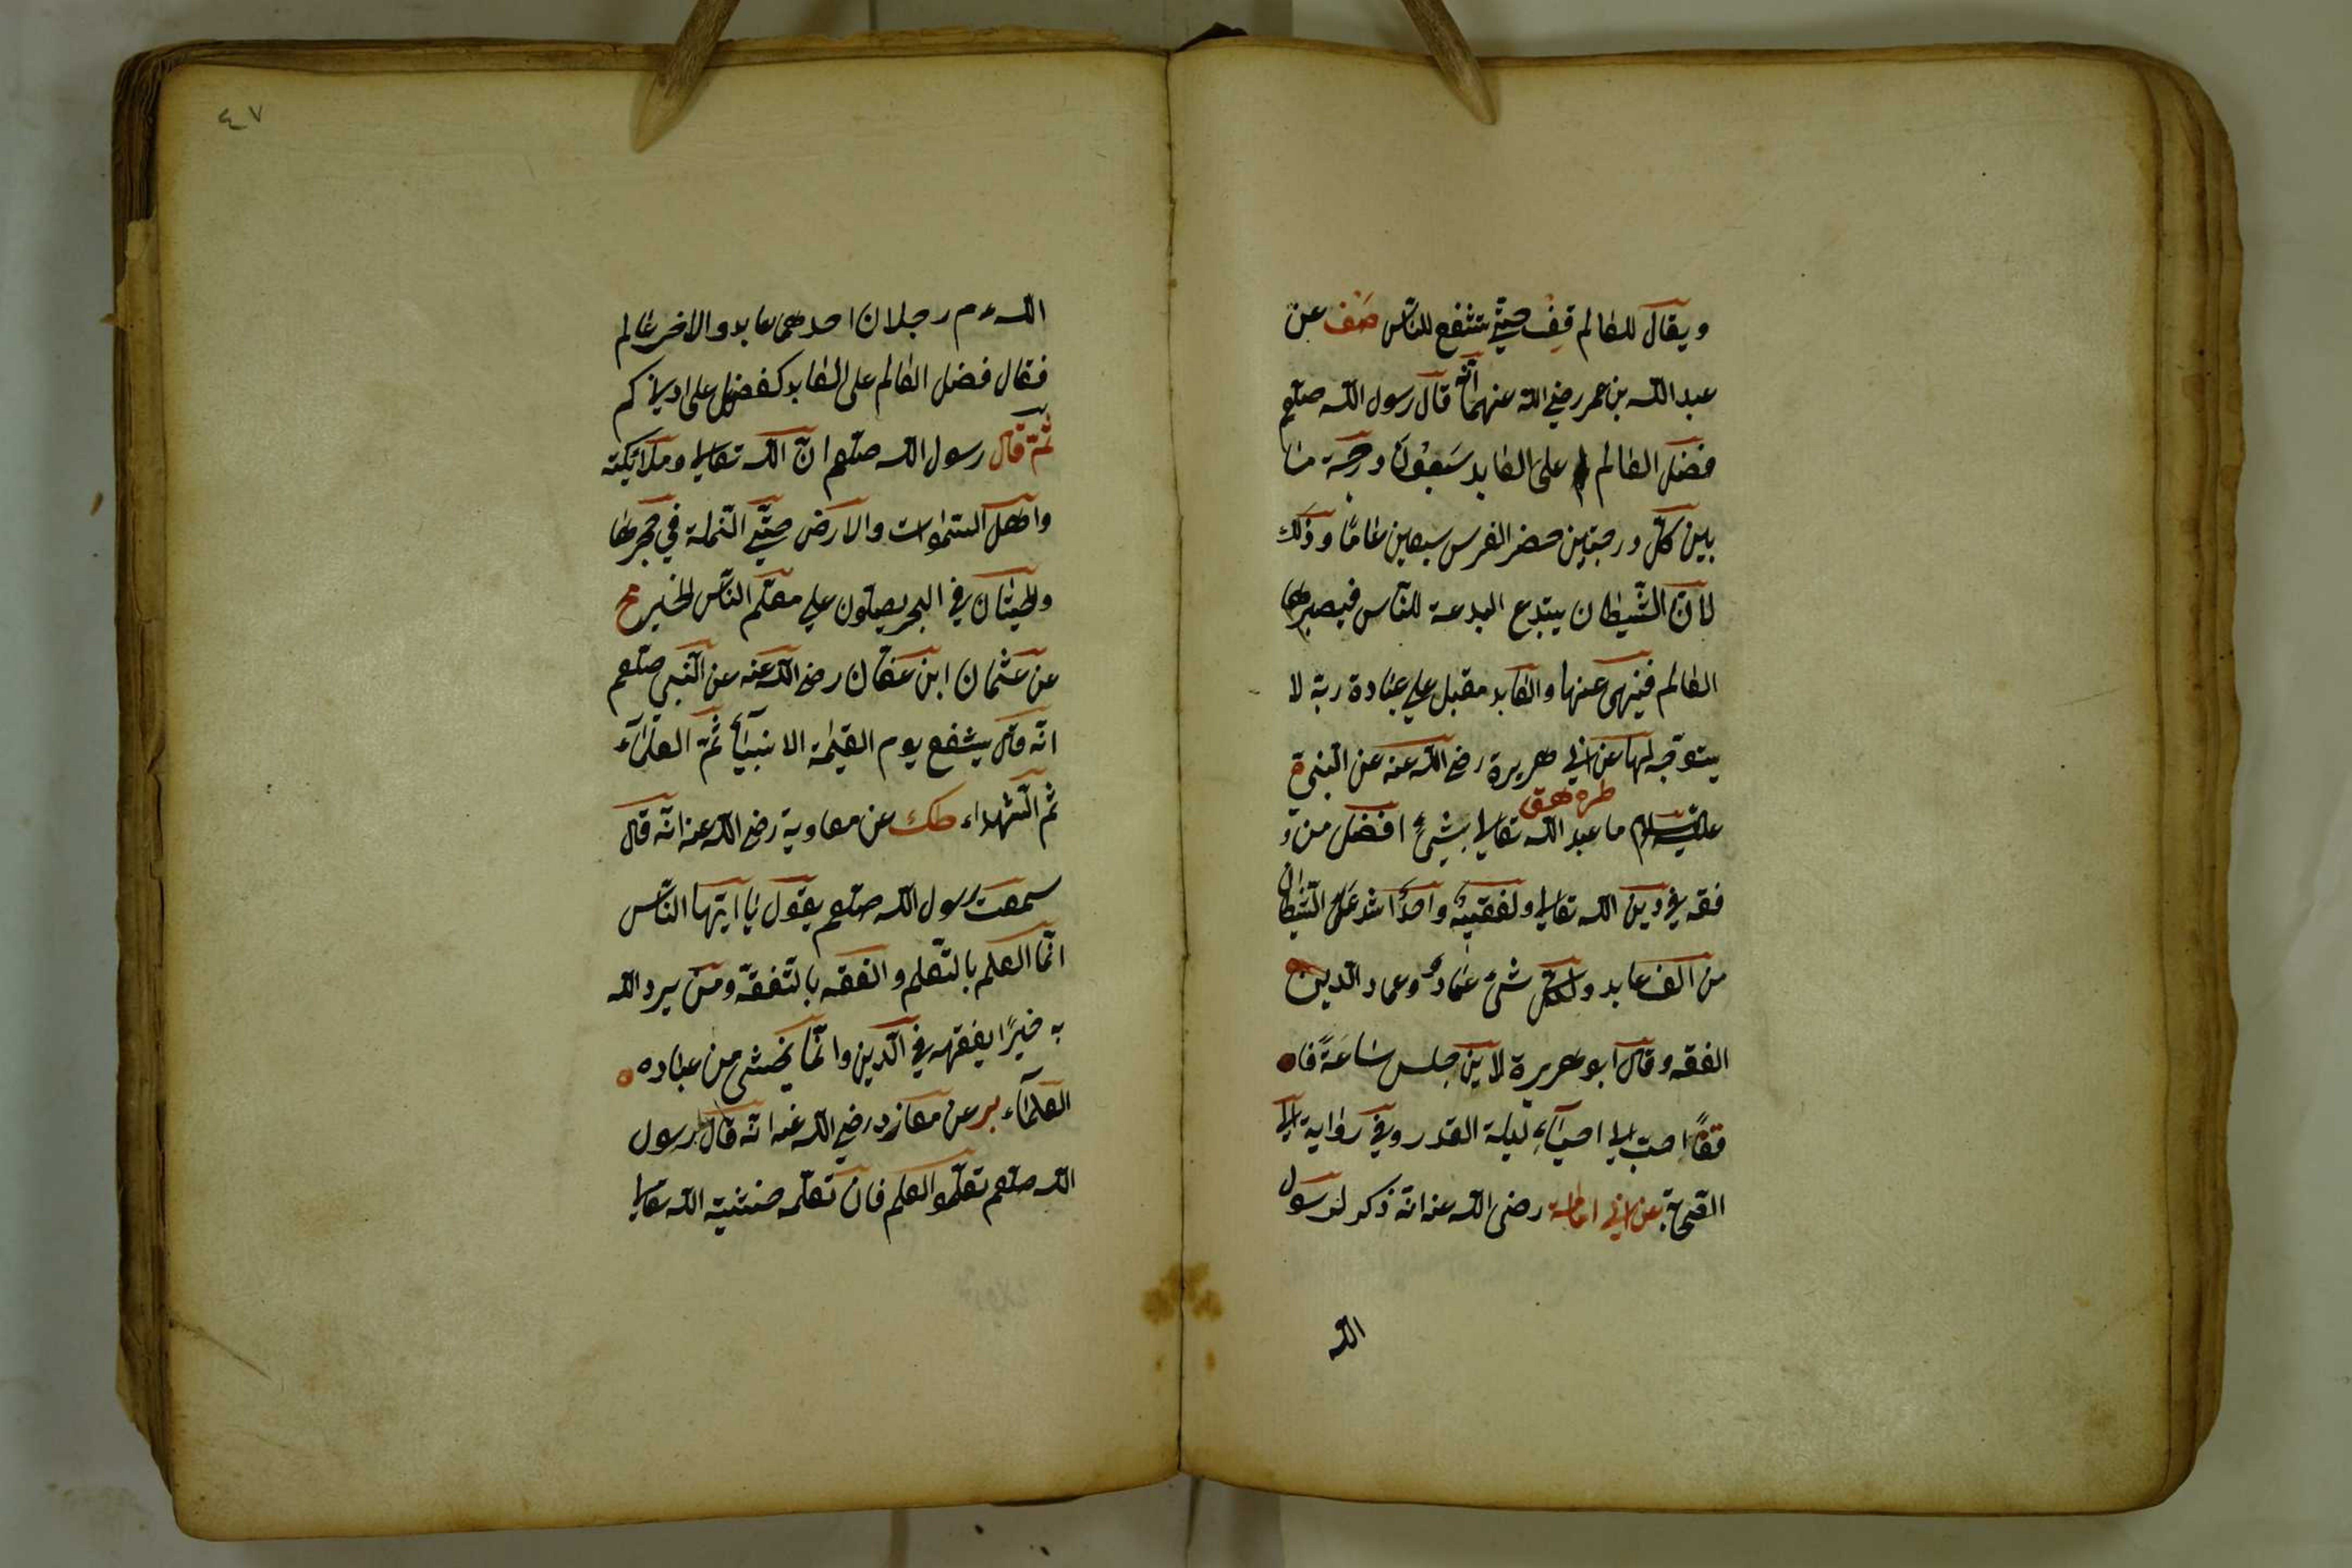 ويقال للعالم قف حتى تشفع للناس صف عن
عبد الله بن عمر رضي الله عنهما أنه قال رسول الله صلعم
فضل العالم على العابد سَبعُونَ درجة ما
بين كلّ درجتين حضر الفرس سبعين عامًا وذلك
لأنّ الشّيطان يبتدع البدعة للنّاس فيبصرها
العالم فينهى عنها والعابد مقبل على عبادة ربّه لا
يتوجّه لها عن ابي هريرة رضي الله عنه عن النبي
طره هق
عليه السلام ما عبد الله تعالى بشئ افضل من
فقه في دين الله تعالى ولفقيه واحدٌ اشد على الشيطان
من الف عابد ولكل شئ عمادٌ وعماد الدين
الفقه وقال ابو هريرة لاين جلس ساعةً فا
فقهًا احبّ الي احياء ليلة القدر وفي رواية الى
عن ابي امامة رضي الله عنه انّه ذكر لرسول
الله
٤٧
الله ءم رجلان احدهما عابد والاخر عالم
فقال فضل العالم على العابد كفضلي على ادناكم
ثمّ قال رسول الله صلعم انّ الله تعالى وملائكته
واهل السّموات والارض حتّى النّملة في حجرها
والحيتان في البحر يصلّون على معلّم النّاس الخير
عن عثمان ابن عفّان رضي الله عنه عن النّبي صلعم
انّه قال يشفع يوم القيمة الانبياء ثمّ العلماء
ثم الشّهداء طك عن معاوية رضي الله عنه انّه قال
سمعت رسول الله صلعم يقول يا ايّها النّاس
انّما العلم بالتّعلم والفقه بالتّفقّه ومن يرد الله
به خيرًا يفقهه في الدّين وانّما يخشى من عباده
العلماء بر عن معاز رضي الله عنه انّه قال رسول
الله صلعم تعلّموا العلم فانّ تعلّمه خشية الله تعالى